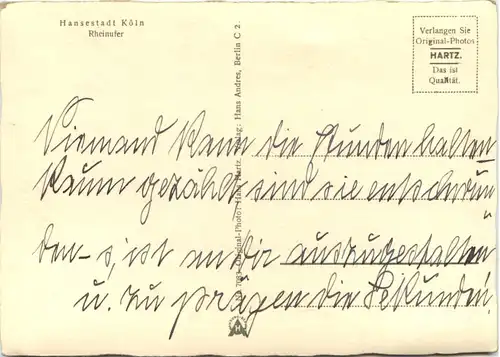 Hansestadt Köln
Rheinufer
Verlangen Sie
Original-Photos
HARTZ.
Das ist
Qualität.
Original-Photo: Hans Hartz. Verlag: Hans Andres, Berlin C 2.
Niemand kann die Stunden halten
Kaum gezählt sind sie entschwun-
den – s'ist an dir auszugestalten
u. zu prägen die Sekunden